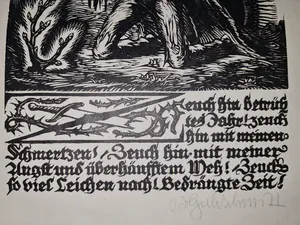 Zeuch hin betrüb
tes Jahr! zeuch
hin mit meinen
Schmertzen! Zeuch hin mit meiner
Angst und überhäufftem Weh! Zeuch
so viel Leichen nach! Bedrängte Zeit!